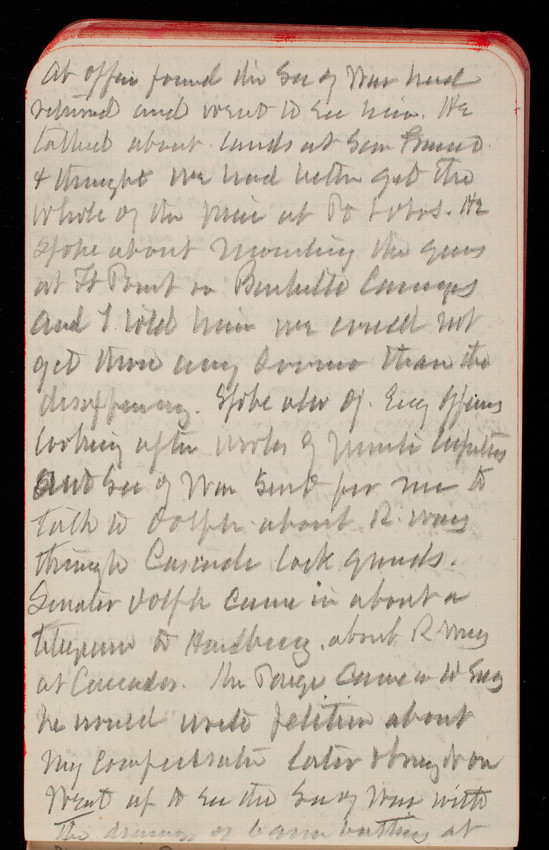 At office found the Sec of War had
returned and went to see him. He
talked about lands at San Franc.
& thought we had better get the
whole of the        at Pt Lobos. He
Spoke about Mounting the guns
at Ft Point on Barbette Carriages
and I told him we could not
get them any sooner than the
disappearing. Spoke also of Eng Officers
looking after works of
and Sec of War sent for me to
talk to Dolph about R. ways
through Cascade lock grounds.
Senator Dolph came in about a
telegram to Handbury about R way
at Cascades. Mr          came in to say
he would write petition about
my compensation later & bring it on
Went up to see the Sec of War with
the drawings of                at